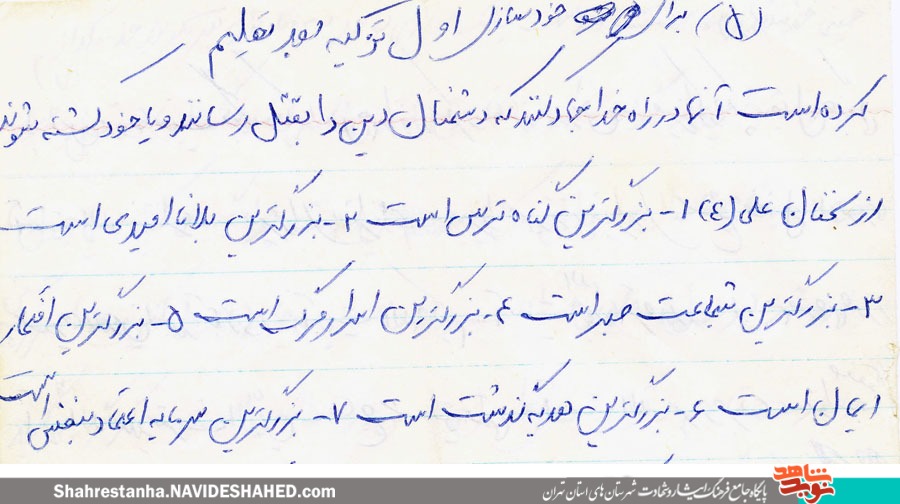 (۵) برای خودسازی اول تزکیه بعد تعلیم
کرده است آنها در راه خدا جهاد کنند که دشمنان دین را بقتل رسانند و یا خود کشته شوند
از سخنان علی (ع) ۱- بزرگترین گناه ترس است ۲- بزرگترین بلا نا امیدی است
۳- بزرگترین شجاعت صبر است ۴- بزرگترین اسرار مرگ است ۵- بزرگترین افتخار
ایمان است ۶- بزرگترین هدیه گذشت است ۷- بزرگترین سرمایه اعتماد بنفس است
Shahrestanha.NAVIDESHAHED.com
پایگاه جامع فرهنگ ایثار و شهادت شهرستان های استان تهران
نوید شاهد